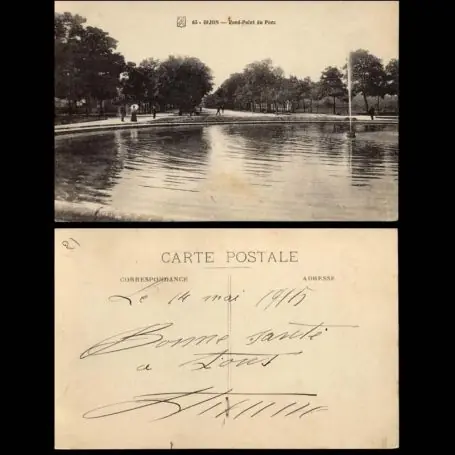 65 - DIJON — Rond-Point du Parc
21
CARTE POSTALE
CORRESPONDANCE
ADRESSE
Le 14 mai 1915
Bonne santé
a Tous